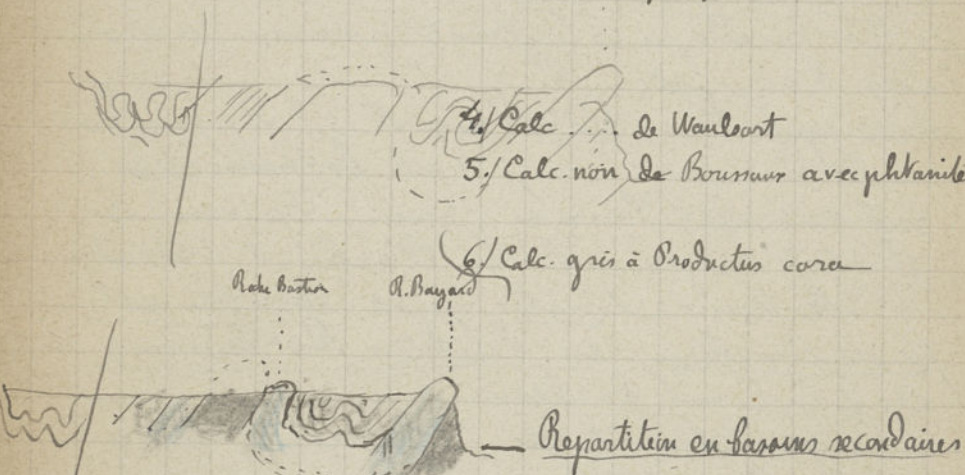 4./ Calc. ... de Waulsort
5./ Calc. noir de Boussus avec phtanite
6./ Calc. gris à Productus cora
Roche Bastion R. Bayard
Repartition en bassins secondaires